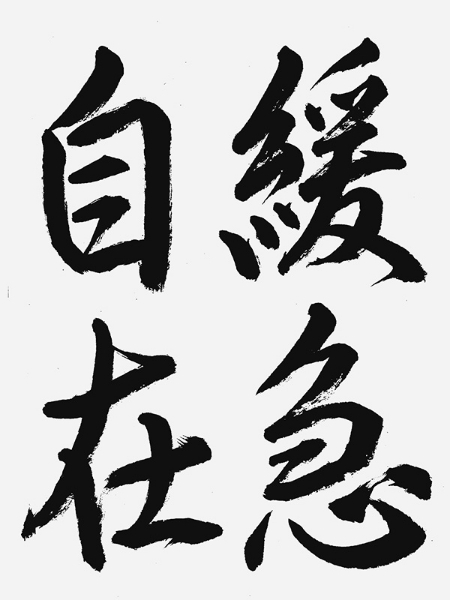 緩急
自在